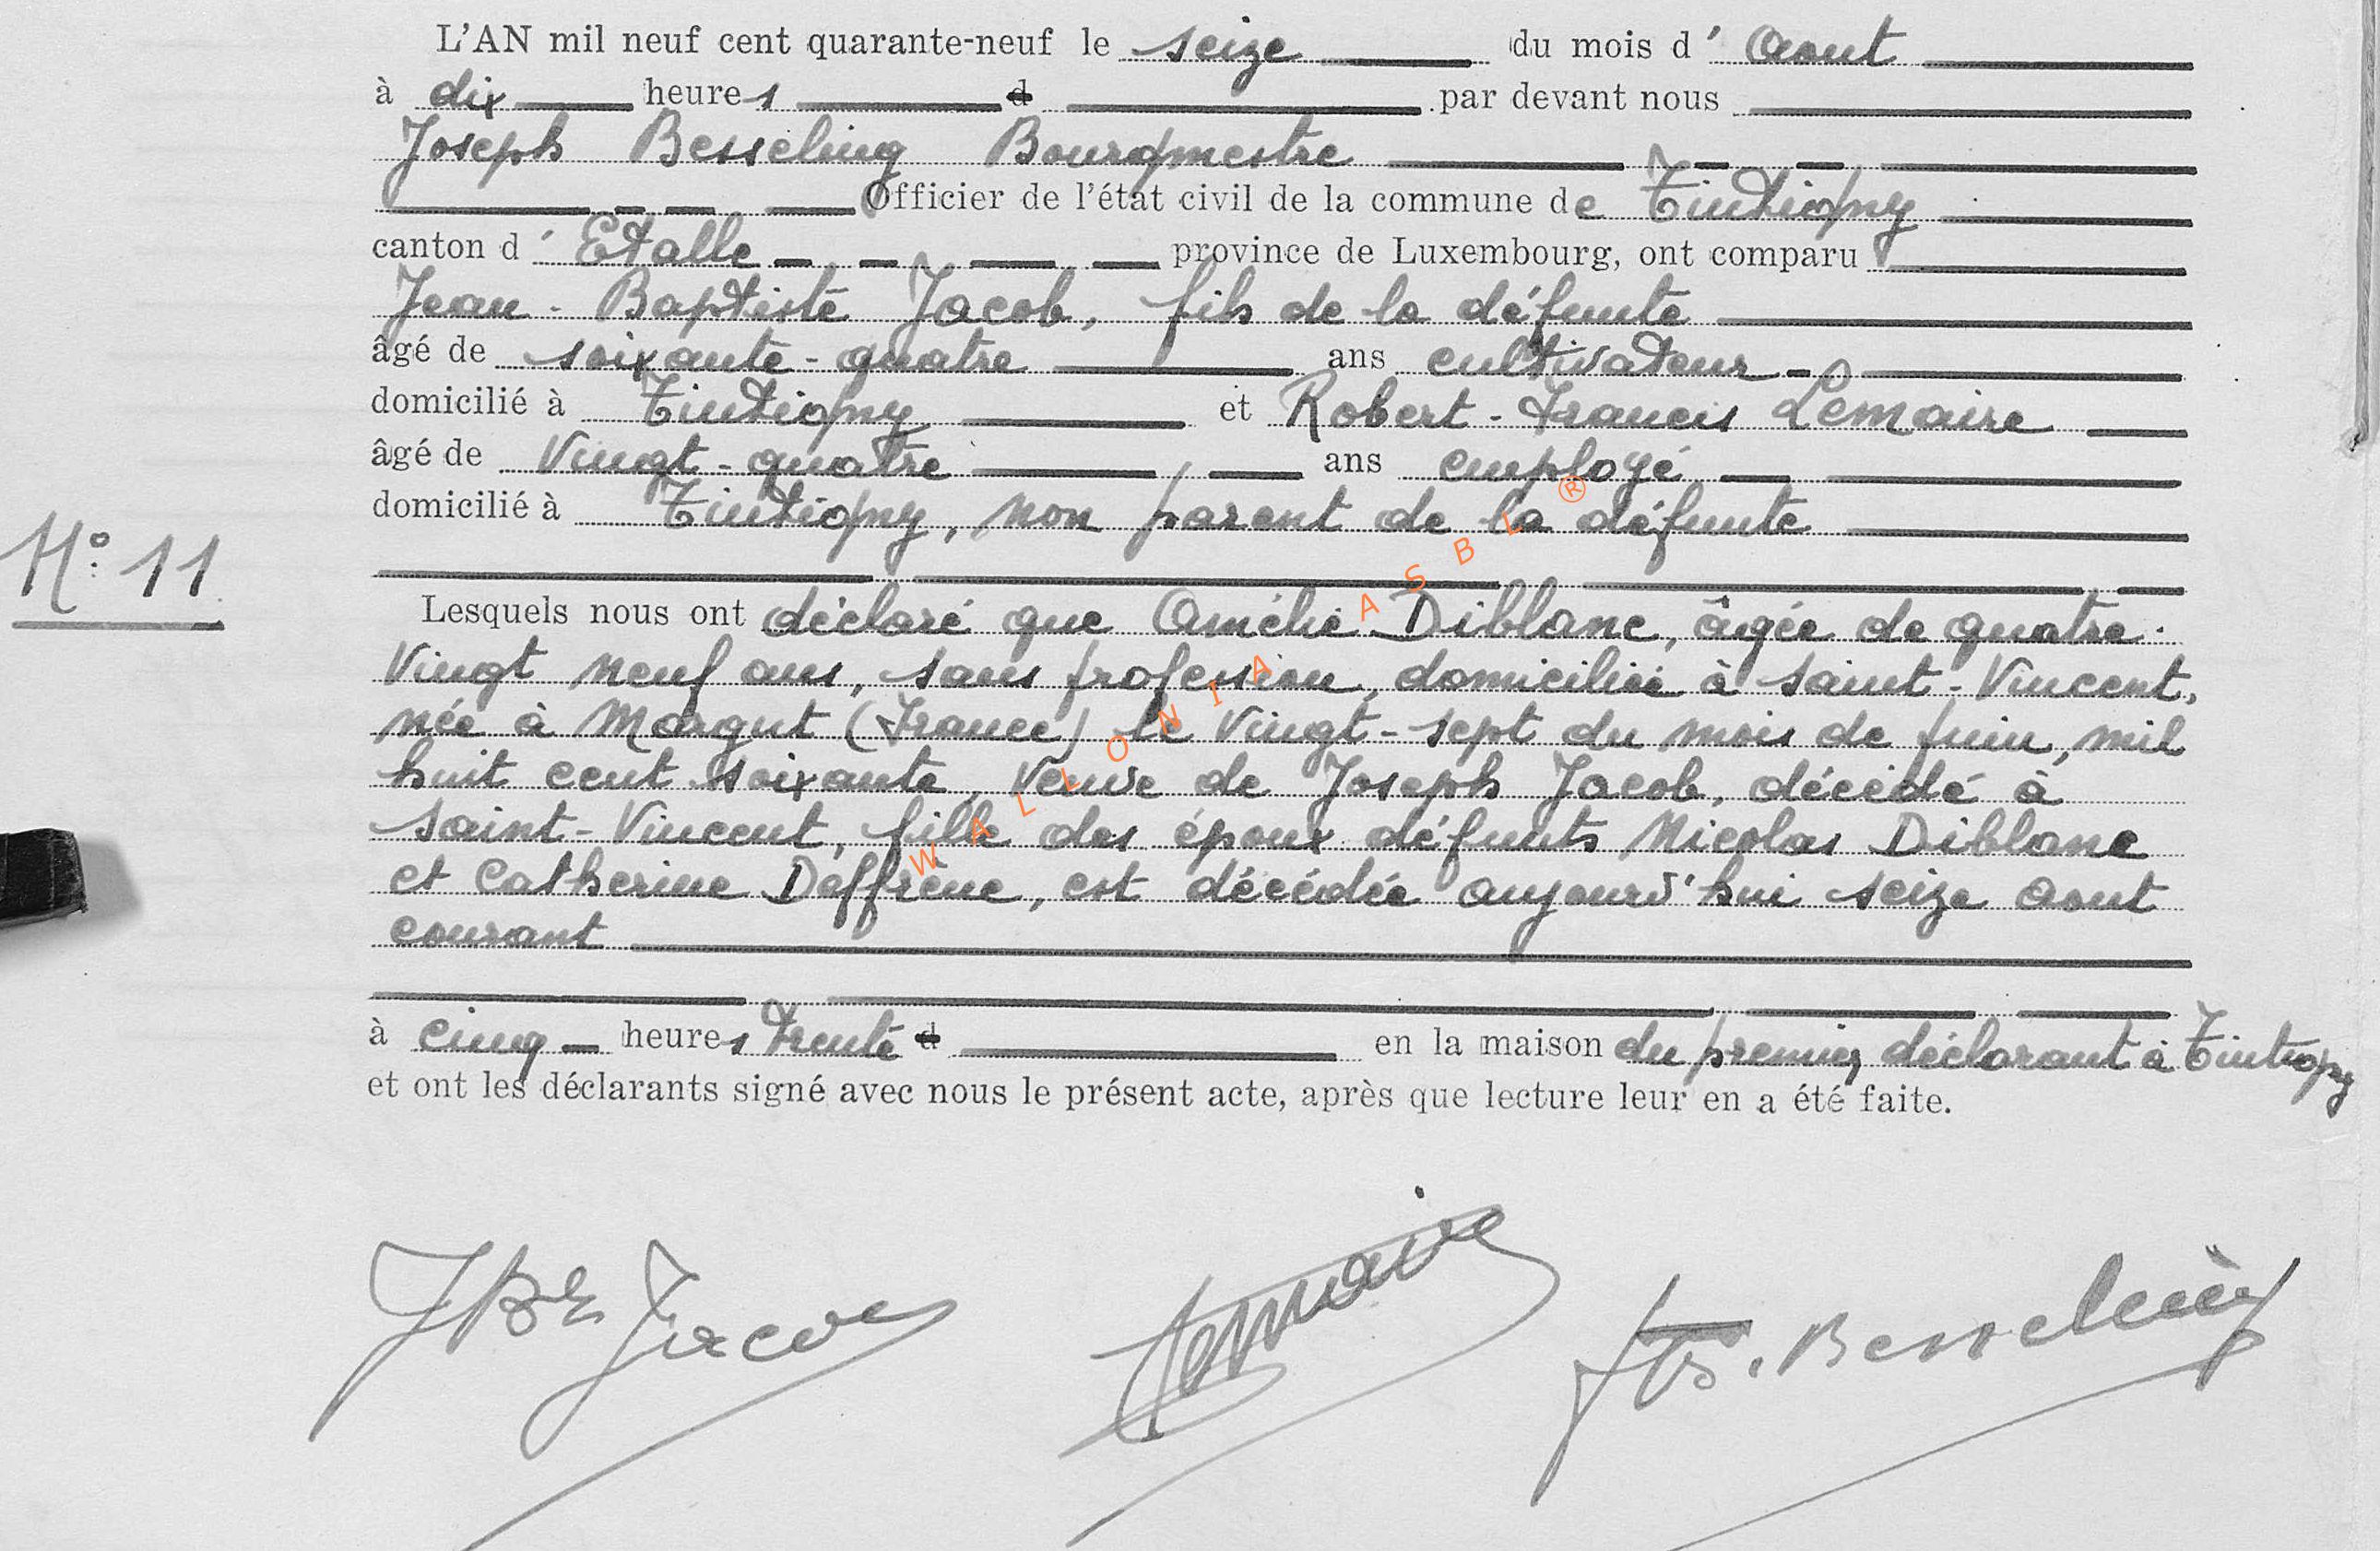 L'AN mil neuf cent quarante-neuf le seize du mois d' Aout
à dix heures d par devant nous
Joseph Besseling Bourgmestre
Officier de l'état civil de la commune de Tintigny
canton d' Etalle province de Luxembourg, ont comparu
Jean-Baptiste Jacob, fils de la défunte
âgé de soixante-quatre ans cultivateur
domicilié à Tintigny et Robert-Francis Lemaire
âgé de vingt-quatre ans employé
domicilié à Tintigny, non parent de la défunte
N° 11
Lesquels nous ont déclaré que Amélie Diblanc, âgée de quatre-
vingt neuf ans, sans profession, domiciliée à Saint-Vincent,
née à Margut (France) le vingt-sept du mois de juin, mil
huit cent soixante, veuve de Joseph Jacob, décédé à
Saint-Vincent, fille des époux défunts Nicolas Diblanc
et Catherine Deffrène, est décédée aujourd'hui seize Aout
courant
à cinq heures trente d en la maison du premier déclarant à Tintigny
et ont les déclarants signé avec nous le présent acte, après que lecture leur en a été faite.
JBte Jacob Lemaire Jos. Besseling
WALLONIA ASBL ®